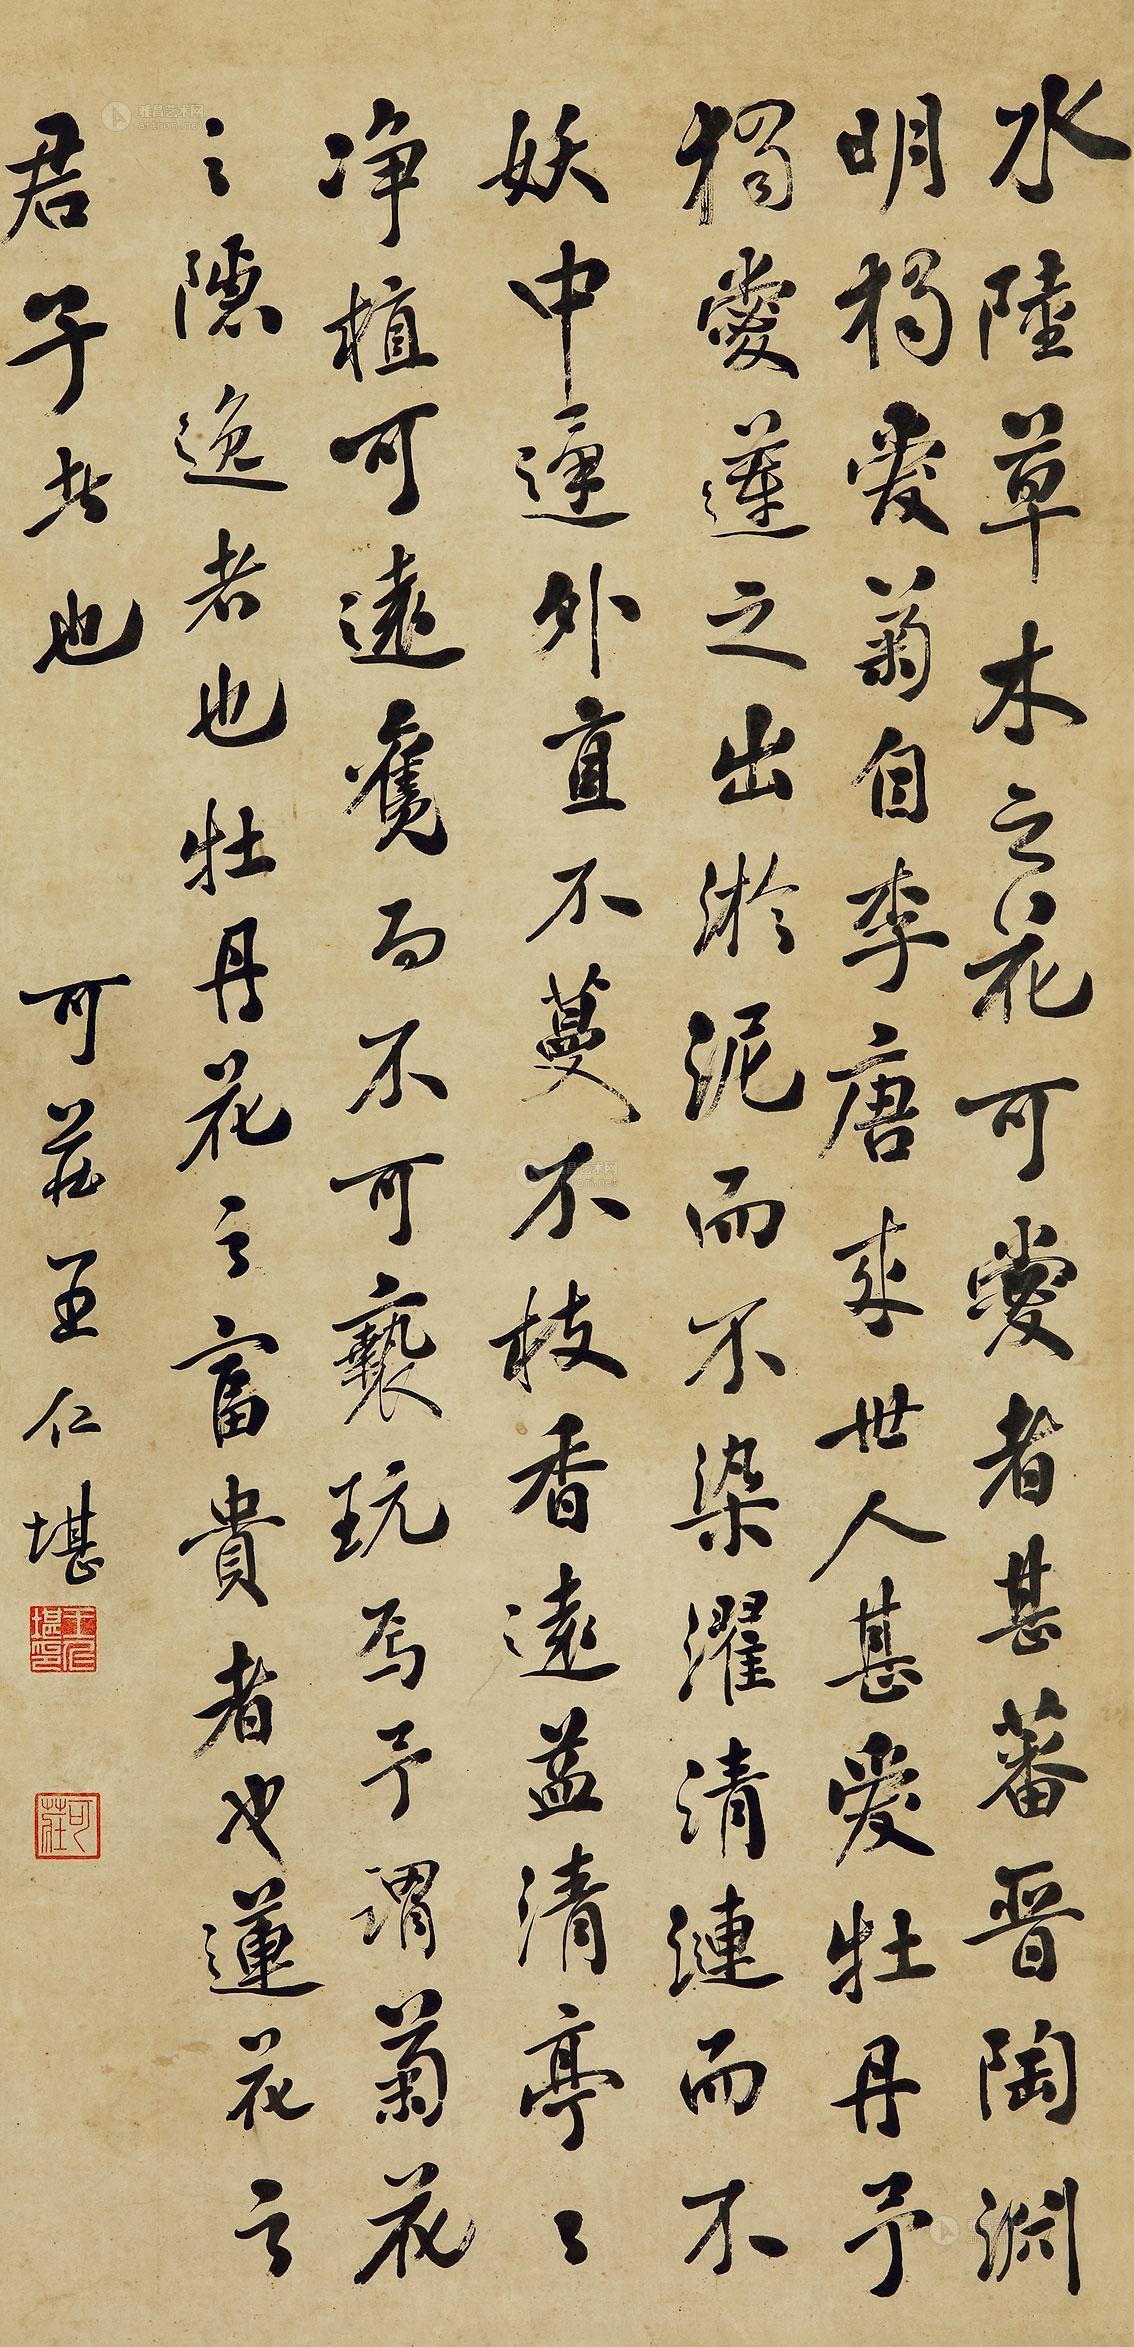 水陸草木之花可愛者甚蕃晋陶淵
明獨愛菊自李唐來世人甚愛牡丹予
獨愛蓮之出淤泥而不染濯清漣而不
妖中通外直不蔓不枝香遠益清亭〻
净植可遠觀而不可褻玩焉予謂菊花
之隱逸者也牡丹花之富貴者也蓮花之
君子者也
可莊王仁堪
王仁堪印
可莊
雅昌艺术网
artron.net